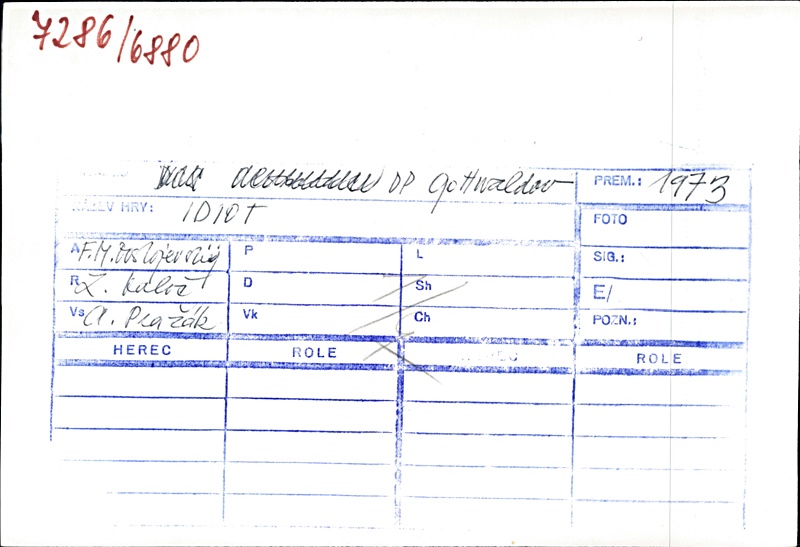 7286/6880
DP Gottwaldov PREM.: 1973
NÁZEV HRY: IDIOT FOTO
A F.M. Dostojevskij P L SIG.:
R Z. Kaloč D Sh E/
Vs A. Pražák Vk Ch POZN.:
HEREC ROLE ROLE